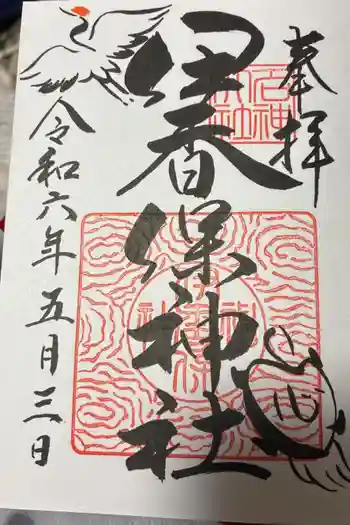 奉拝
伊香保神社
令和六年五月三日